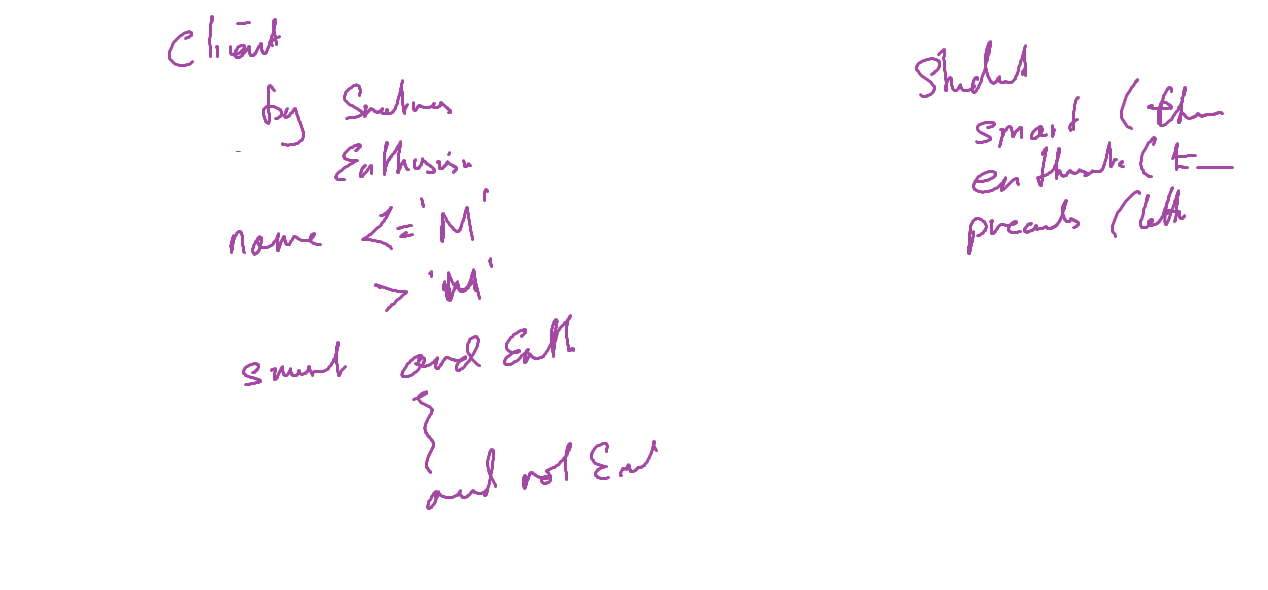 Client
by Smartness
Enthusias
name <= 'M'
> 'M'
smart and Enth
and not En
Student
smart (th
enthusiastic (t
precedes (lett